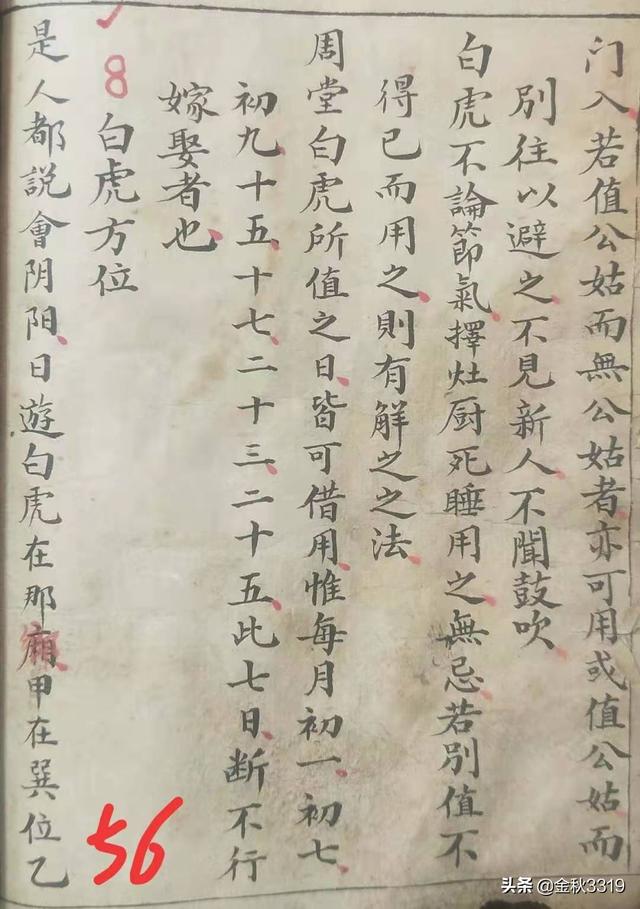 门入若值公姑而無公姑者亦可用或值公姑而
別往以避之不見新人不聞鼓吹
白虎不論節氣擇灶厨死睡用之無忌若別值不
得已而用之則有解之之法
周堂白虎所值之日皆可借用惟每月初一初七
初九十五十七二十三二十五此七日断不行
嫁娶者也
8白虎方位
是人都説會阴阳日遊白虎在那廂甲在巽位乙
56
头条 @金秋3319